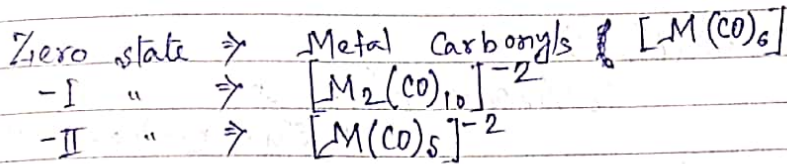 Zero state ⇒ Metal Carbonyls [M(CO)6]
-I " ⇒ [M2(CO)10]-2
-II " ⇒ [M(CO)5]-2